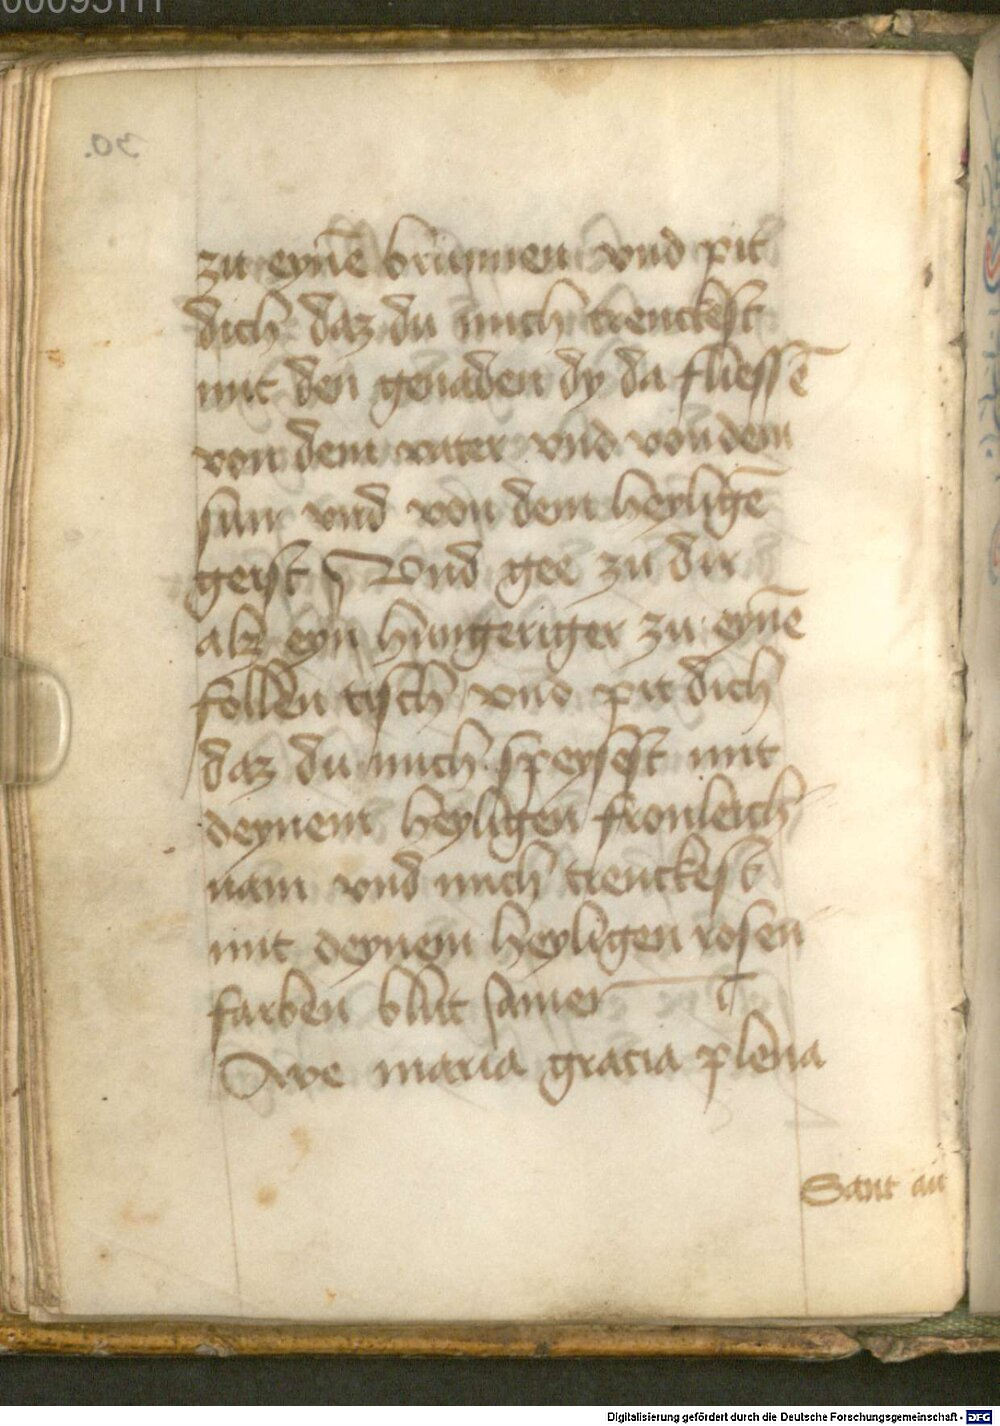 zu eynē brunnen vnd pit
dich daz du mich trenckest
mit den genaden dy da fliessē
von dem vater vnd von dem
sun vnd von dem heyligē
geist Vnd gee zu dir
alz eyn hungeriger zu eynē
follen tisch vnd pit dich
daz du mich speysest mit
deynem heyligen fronleich
nam vnd mich trenckest
mit deynem heyligen rosen
farben blut famer
Ave maria gracia plena
Sant an
Digitalisierung gefördert durch die Deutsche Forschungsgemeinschaft - DFG